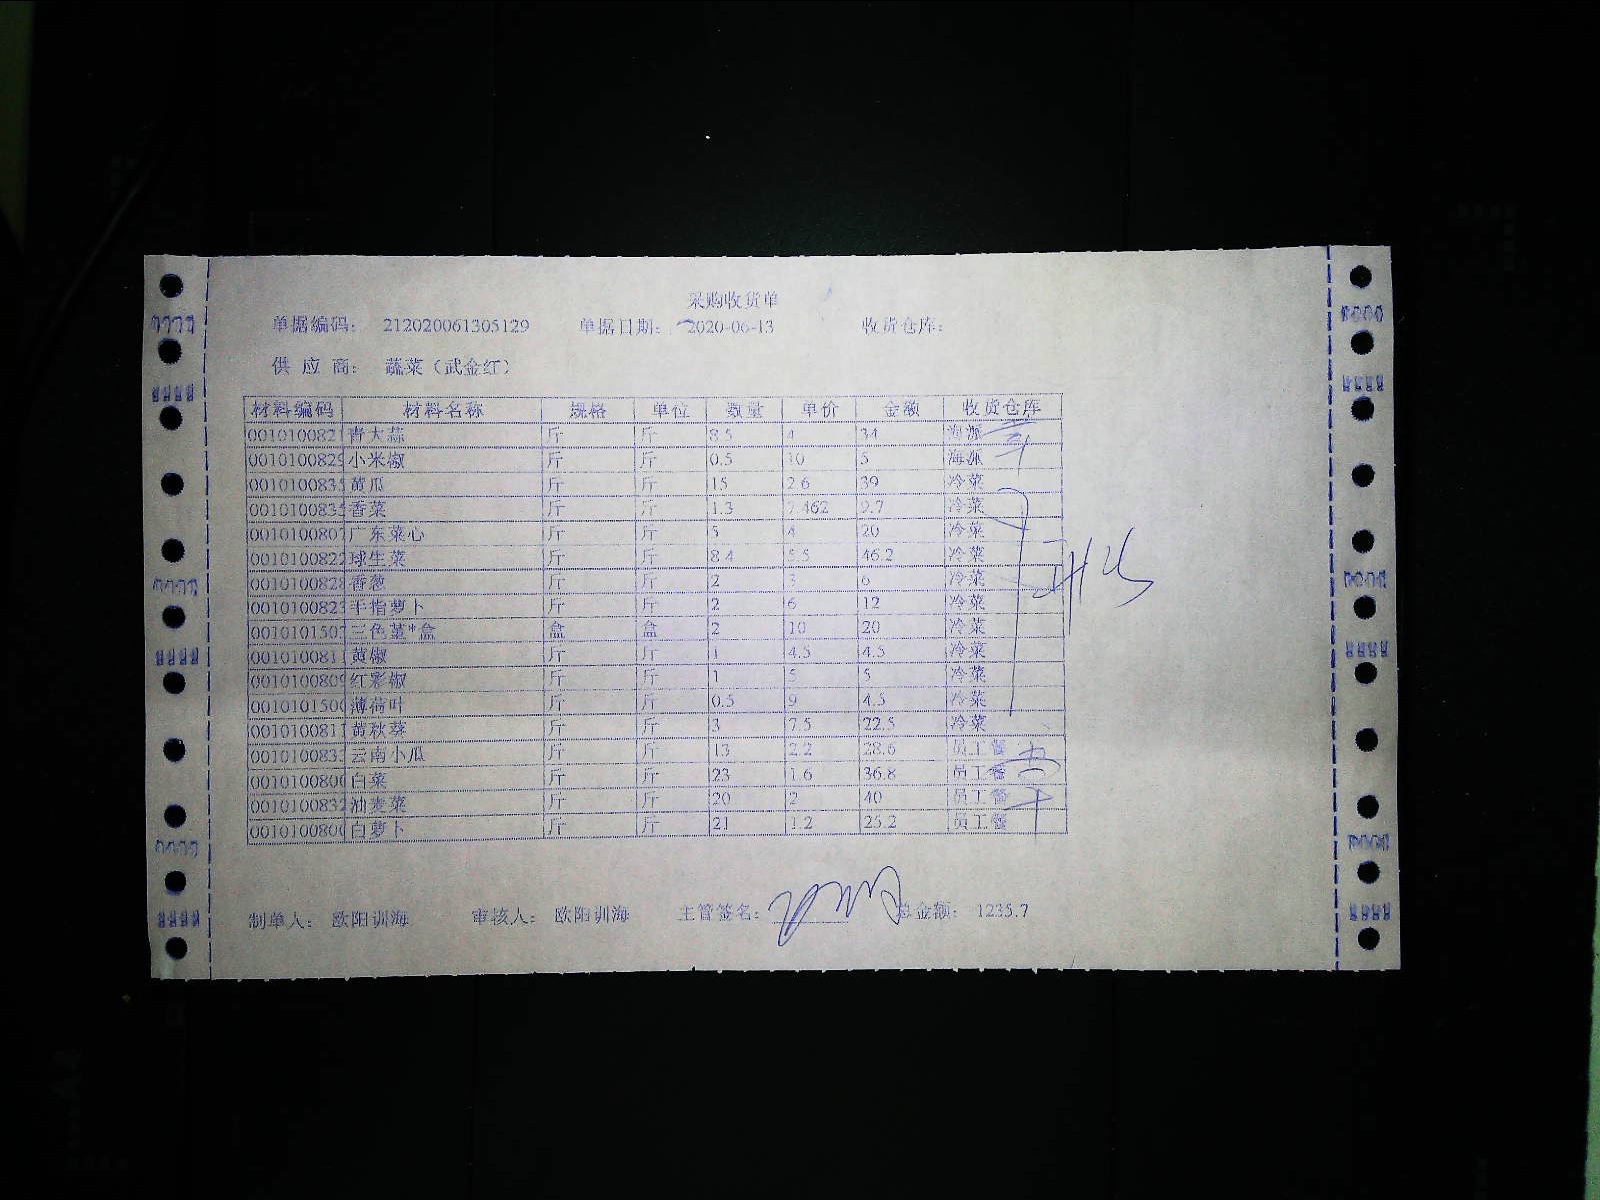 采购收货单
单据编码: 212020061305129 单据日期: 2020-06-13 收货仓库:
供 应 商: 蔬菜（武金红）
材料编码 材料名称 规格 单位 数量 单价 金额 收货仓库
0010100821 青大蒜 斤 斤 8.5 4 34 海派
0010100829 小米椒 斤 斤 0.5 10 5 海派
0010100835 黄瓜 斤 斤 15 2.6 39 冷菜
0010100835 香菜 斤 斤 1.3 7.462 9.7 冷菜
0010100807 广东菜心 斤 斤 5 4 20 冷菜
0010100822 球生菜 斤 斤 8.4 5.5 46.2 冷菜
0010100828 香葱 斤 斤 2 3 6 冷菜
0010100823 手指萝卜 斤 斤 2 6 12 冷菜
0010101507 三色堇*盒 盒 盒 2 10 20 冷菜
0010100811 黄椒 斤 斤 1 4.5 4.5 冷菜
0010100809 红彩椒 斤 斤 1 5 5 冷菜
0010101500 薄荷叶 斤 斤 0.5 9 4.5 冷菜
0010100811 黄秋葵 斤 斤 3 7.5 22.5 冷菜
0010100833 云南小瓜 斤 斤 13 2.2 28.6 员工餐
0010100800 白菜 斤 斤 23 1.6 36.8 员工餐
0010100832 油麦菜 斤 斤 20 2 40 员工餐
0010100800 白萝卜 斤 斤 21 1.2 25.2 员工餐
制单人: 欧阳训海 审核人: 欧阳训海 主管签名: 总金额: 1235.7